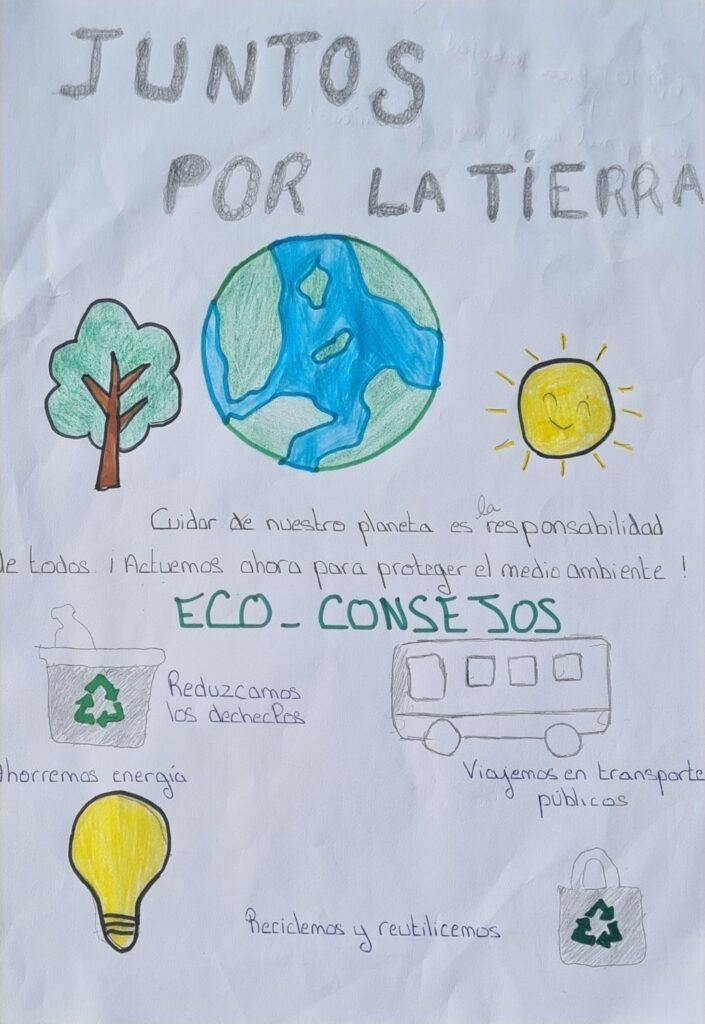 JUNTOS
POR LA TIERRA
Cuidar de nuestro planeta es la responsabilidad
de todos. ¡Actuemos ahora para proteger el medio ambiente!
ECO-CONSEJOS
Reduzcamos
los dechechos
Ahorremos energía
Viajemos en transporte
públicos
Reciclemos y reutilicemos